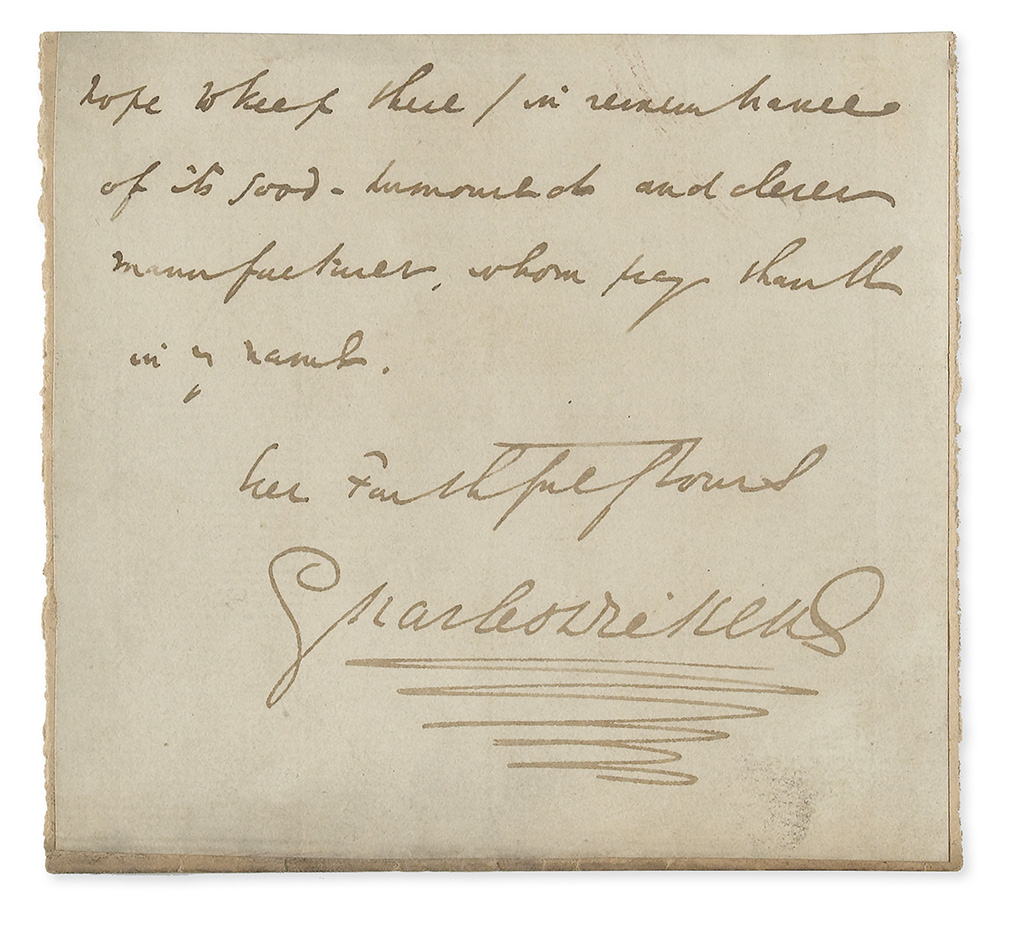 hope to keep there / in remembrance
of its good-humoured and clever
manufacturer, whom pray thank
in my name.
Faithfully Yours
Charles Dickens